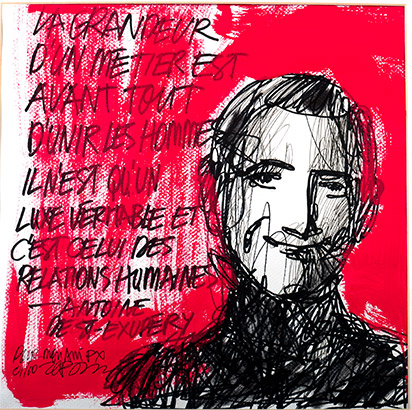 LA GRANDEUR
D'UN METIER EST
AVANT TOUT
D'UNIR LES HOMMES
IL N'EST QU'UN
LUXE VÉRITABLE ET
C'EST CELUI DES
RELATIONS HUMAINES
— ANTOINE
DE ST. EXUPERY